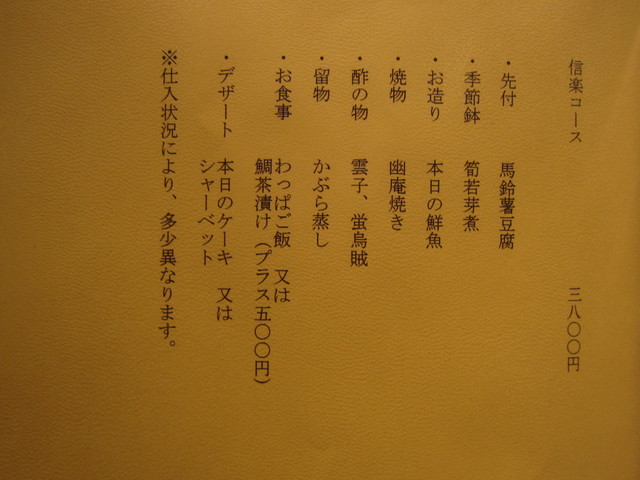 信楽コース　三八〇〇円
・先付　馬鈴薯豆腐
・季節鉢　筍若芽煮
・お造り　本日の鮮魚
・焼物　幽庵焼き
・酢の物　雲子、蛍烏賊
・留物　かぶら蒸し
・お食事　わっぱご飯　又は
鯛茶漬け（プラス五〇〇円）
・デザート　本日のケーキ　又は
シャーベット
※仕入状況により、多少異なります。